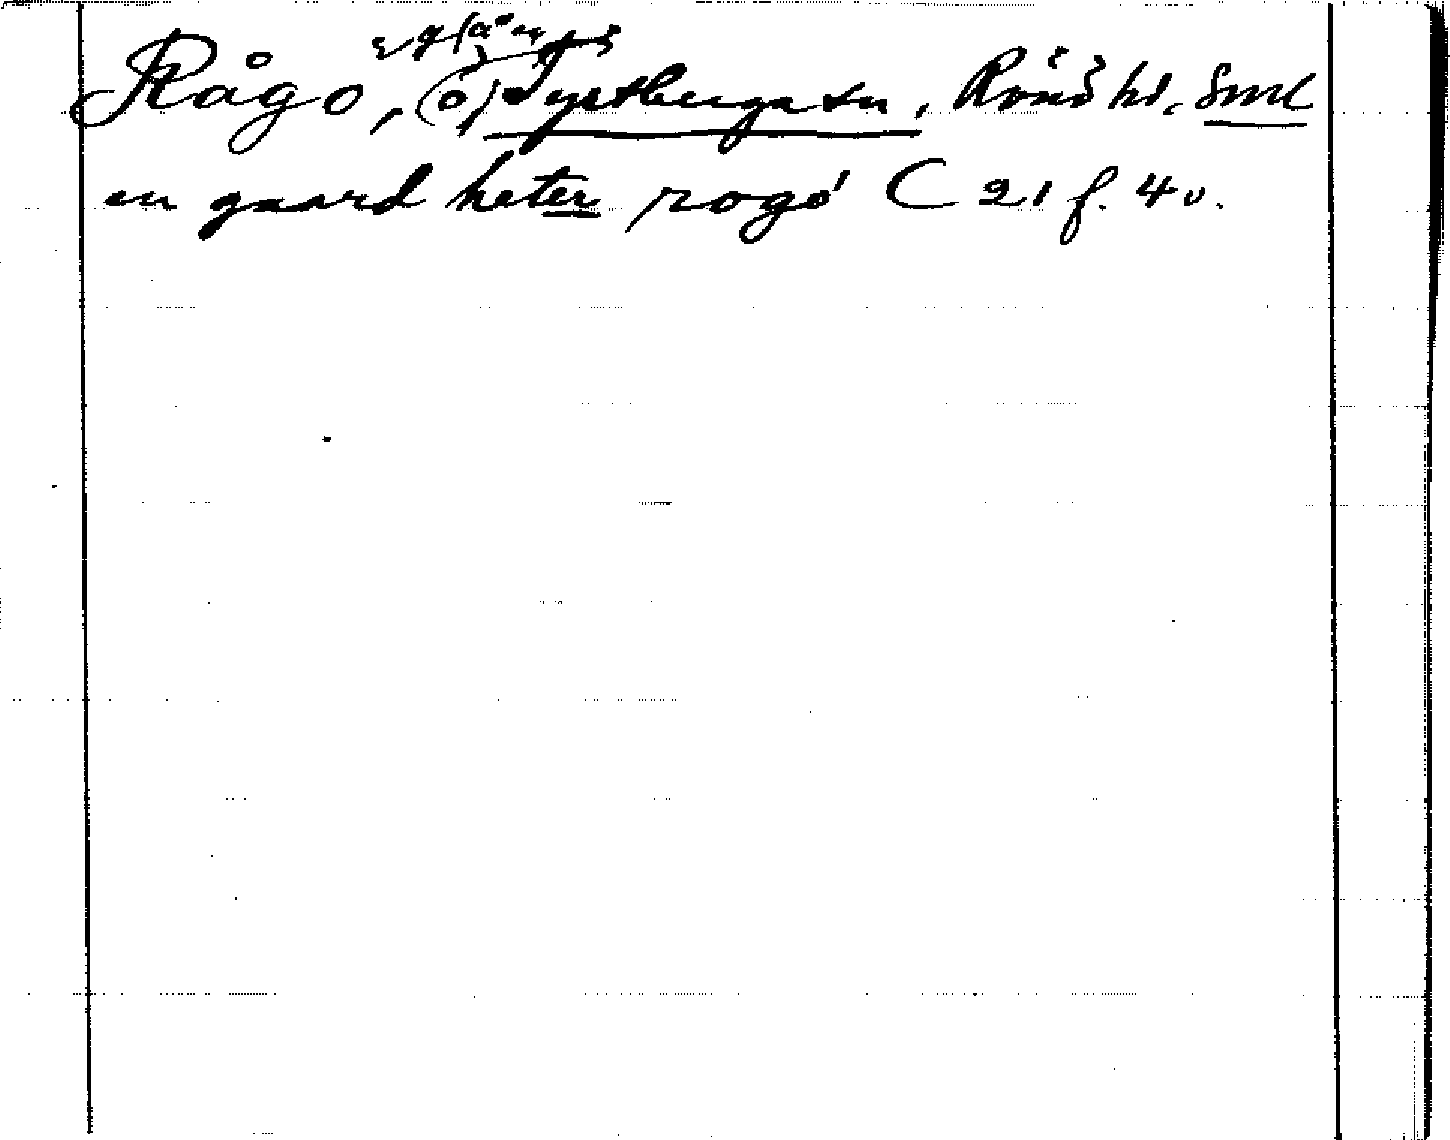 Rågö, (ö) Tystberga sn, Rönö hd, Sml
en gaard heter rogó C 21 f. 4 v.